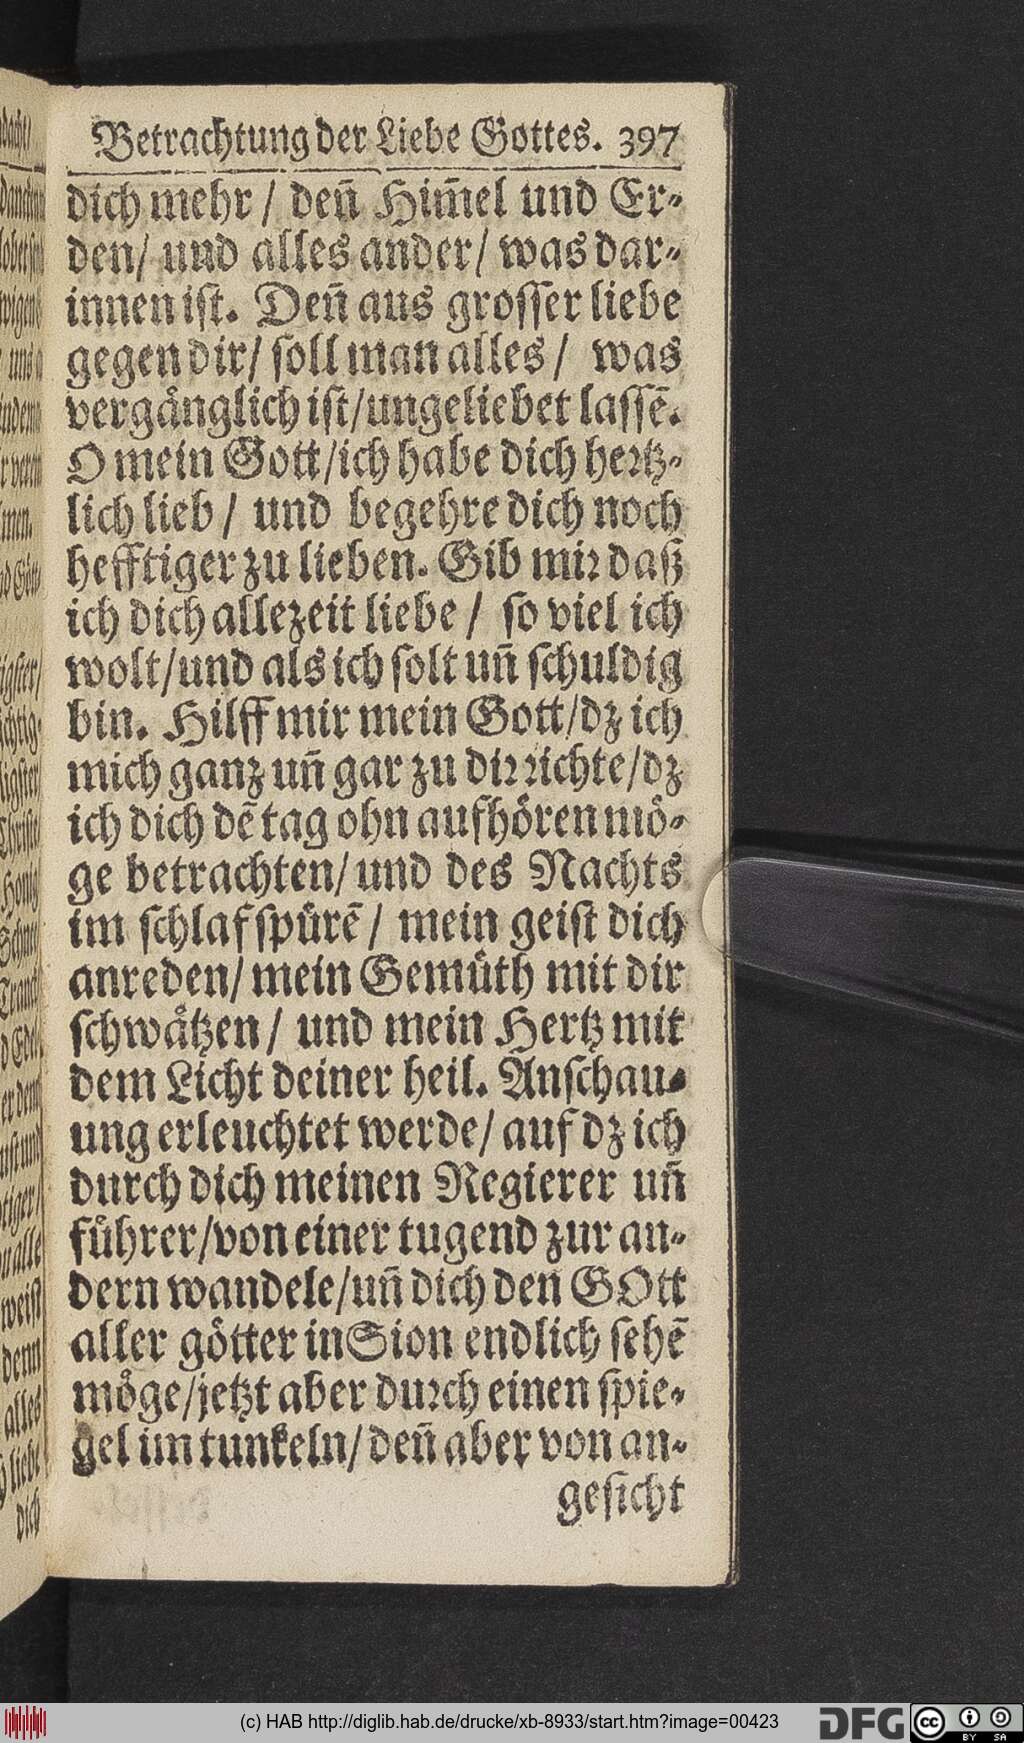 Betrachtung der Liebe Gottes. 397
dich mehr / deñ Him̃el und Er-
den/ und alles ander/ was dar-
innen ist. Deñ aus grosser liebe
gegen dir/ soll man alles / was
vergånglich ist/ungeliebet lassẽ.
O mein Gott/ich habe dich hertz-
lich lieb / und begehre dich noch
hefftiger zu lieben. Gib mir daß
ich dich allezeit liebe / so viel ich
wolt/und als ich solt uñ schuldig
bin. Hilff mir mein Gott/dz ich
mich ganz uñ gar zu dir richte/dz
ich dich dẽ tag ohn aufhören mö-
ge betrachten/ und des Nachts
im schlaf spürẽ / mein geist dich
anreden/ mein Gemüth mit dir
schwåtzen / und mein Hertz mit
dem Licht deiner heil. Anschau-
ung erleuchtet werde/ auf dz ich
durch dich meinen Regierer uñ
führer/von einer tugend zur an-
dern wandele/uñ dich den GOtt
aller götter in Sion endlich sehẽ
möge/jetzt aber durch einen spie-
gel im tunkeln/ deñ aber von an-
gesicht
dacht/
alle
weist
denn
alles
liebe
dich
(c) HAB http://diglib.hab.de/drucke/xb-8933/start.htm?image=00423
DFG
cc
BY
SA